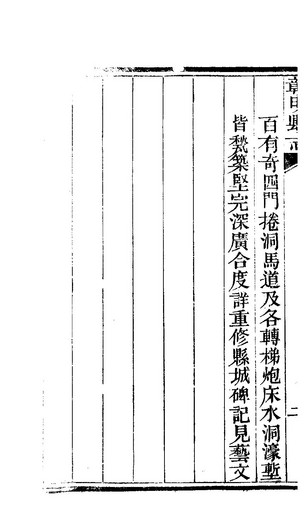 章明縣志
百有奇四門捲洞馬道及各轉梯炮床水洞濠塹
皆甃築堅完深廣合度詳重修縣城碑記見藝文
二